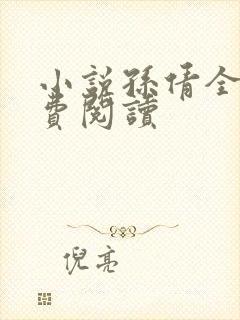 小説孫倩全
費閱讀
倪亮